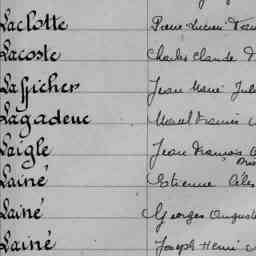 Laclotte Pierre Lucien
Lacoste Charles Claude
Lafficher Jean Marie
Lagadeuc Marcel Francis
Laigle Jean François
Lainé Etienne
Lainé Georges Auguste
Lainé Joseph Henri